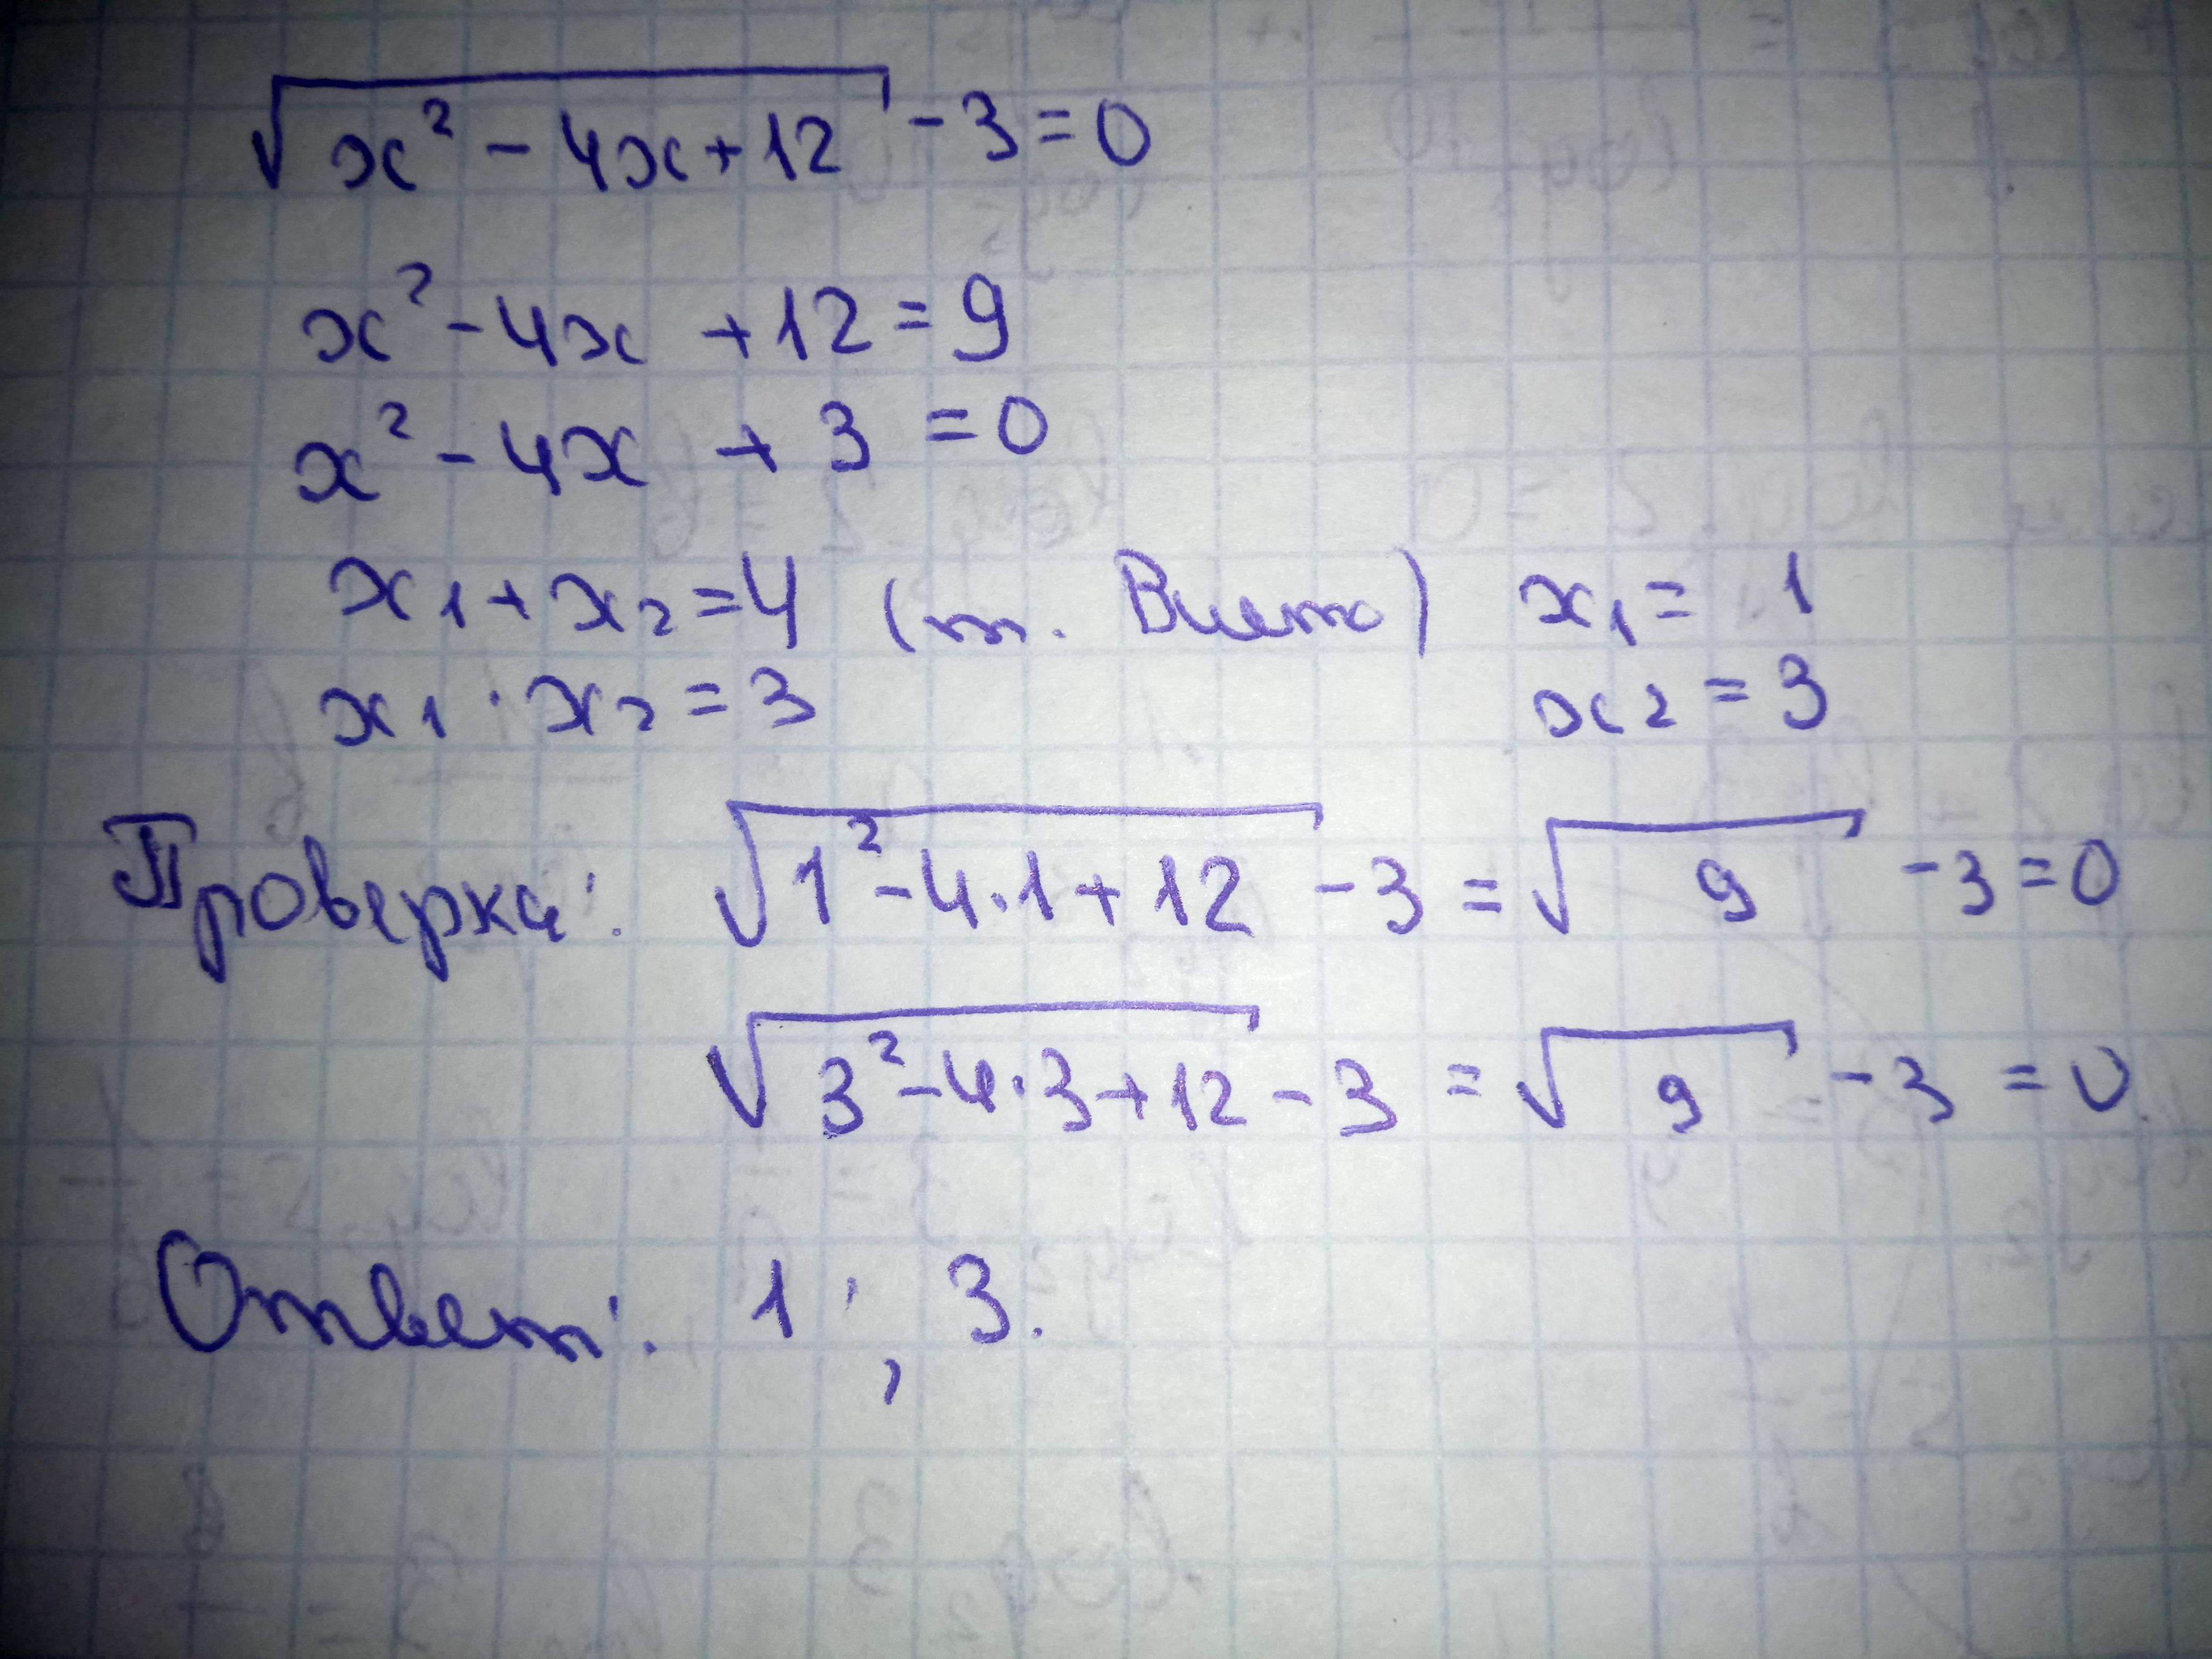 √(x² - 4x + 12) - 3 = 0
x² - 4x + 12 = 9
x² - 4x + 3 = 0
x₁ + x₂ = 4 (т. Виета) x₁ = 1
x₁ · x₂ = 3 x₂ = 3
Проверка: √(1² - 4·1 + 12) - 3 = √9 - 3 = 0
√(3² - 4·3 + 12) - 3 = √9 - 3 = 0
Ответ: 1; 3.